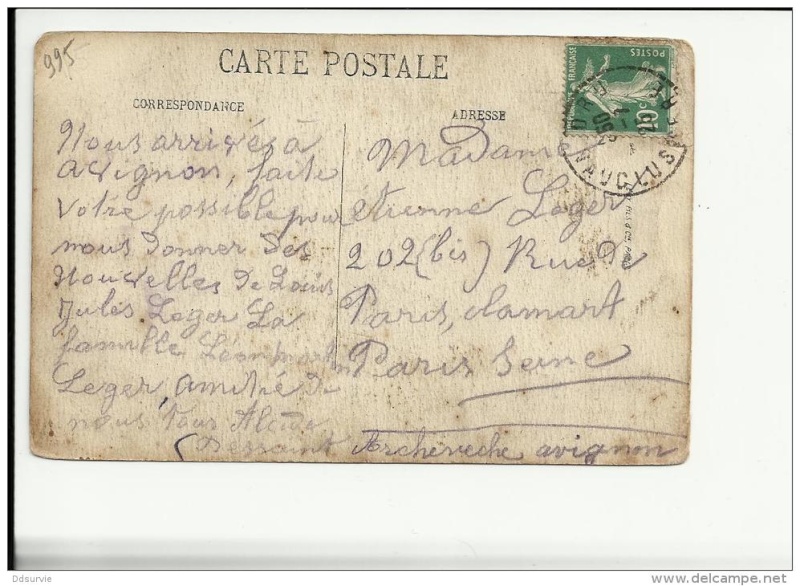 995
CARTE POSTALE
CORRESPONDANCE
ADRESSE
POSTES
FRANÇAISE
10c
VAUCLUSE
Nous arrivés à
Avignon, faite
Votre possible pour
nous donner des
Nouvelles de Louis
Jules Leger La
famille Léon
Leger, amitié de
nous Tous Alcide
Dessaint Archeveche avignon
Madame
etienne Leger
202 (bis) Rue de
Paris, clamart
Paris Seine
Ddsurvie
delcampe.net